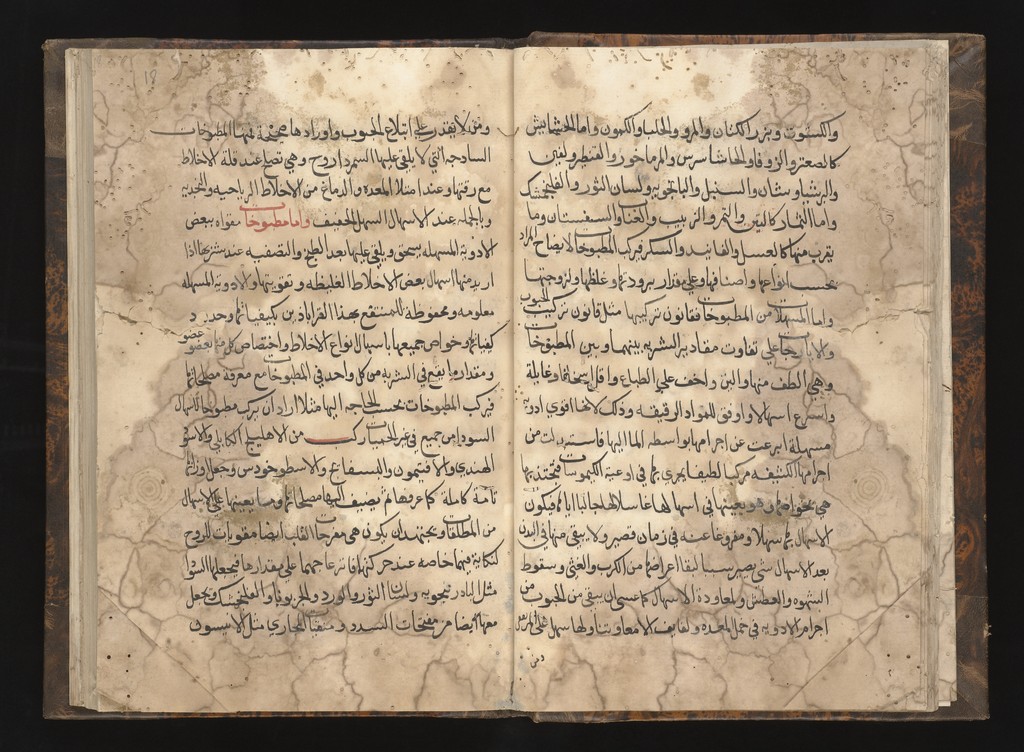 والكشوت وبزر الكتان والمرو والحلبه والكمون واما الحشايش
كالصعتر والزوفا والحاشا سرس والمرماخور والقنطوريون
والبرشاوشان والسنبل والبابونج ولسان الثور والفلنجمشك
واما الثمار كالتين والتمر والزبيب والعناب والسفستان وما
يقرب منها كالعسل والفانيد والسكر فيركب المطبوخ لانضاج المواد
بحسب انواعها واصنافها وعلى مقدار برودتها وغلظها ولزوجتها
واما المسهلات من المطبوخات فقانون تركيبها مثل قانون تركيب الحبوب
والايارجات على تفاوت مقادير الشربه بينها وبين المطبوخات
وهي الطف منها والين واخف على الطباع واقل سخافة وغايلة
واسرع اسهالا واوفق للمواد الرقيقه وذلك لانها قوي ادويه
مسهلة انتزعت عن اجرامها بواسطه الماء اليها فاستبدلت من
اجرامها الكثيفه مركبا لطيفا يجري بها في اوعية الكيموسات فتجذبها
هي بخواصها وهو يعينها في اسهالها غاسلا لها جالبا اياها فيكون
الاسهال بها سهلا ومفروغا عنه في زمان قصير ولا يبقى منها في البدن
بعد الاسهال شي يصير سببا لبقا اعراضها من الكرب والغثي وسقوط
الشهوه والعطش ولمعاودة الاسهال كما عسى ان يبقى من الحبوب من
اجرام الادويه في خمل المعده ولفايف الامعا وتناولها سهل على المرضى
ومن
ومن لا يقدر على ابتلاع الحبوب وايرادها صحيحة فمنها المطبوخات
الساذجه التي لا يلقى عليها السمر داروج وهي تصلح عند قلة الاخلاط
مع رقتها وعند امتلا المعده والدماغ من الاخلاط الرياحيه والتخديه
وبالجمله عند الاسهال السهل الخفيف واما مطبوخات مقواه ببعض
الادوية المسهله يسحق ويلقى عليها بعد الطبخ والتصفيه عند شربها اذا
اريد منها اسهال بعض الاخلاط الغليظه وتقويتها والادوية المسهله
معلومه ومحفوظة للمنتفع بهذا القراباذين بكيفياتها وحدود
كيفياتها وخواص جميعها باسهال انواع الاخلاط واختصاص كل منها بعضو عضو
ومقدار ما يقع في الشربه من كل واحد في المطبوخات مع معرفة مصلحاتها
فيركب المطبوخات بحسب الحاجه اليها مثلا اراد ان يركب مطبوخا لاسهال
السودا من جميع في غير الحميات ركب من الاهليلج الكابلي والاسود
الهندي والافتيمون والبسفايج والاسطوخودس وجعل اوزانها
تامة كاملة كما عرفها ثم يضيف اليها مصلحاتها وما يعينها على الاسهال
من المطلقات ويجتهد ان يكون هي مفرحات القلب ايضا مقويات للروح
لنكاية فيها خاصه عند حركتها وانزعاجها على مقدارها فيجعلها السودا
مثل البادرنجويه ولسان الثور والورد والجزبوا والفلنجمشك ويجعل
معها ايضا من مفتحات السدد ومنقيات المجاري مثل الانيسون